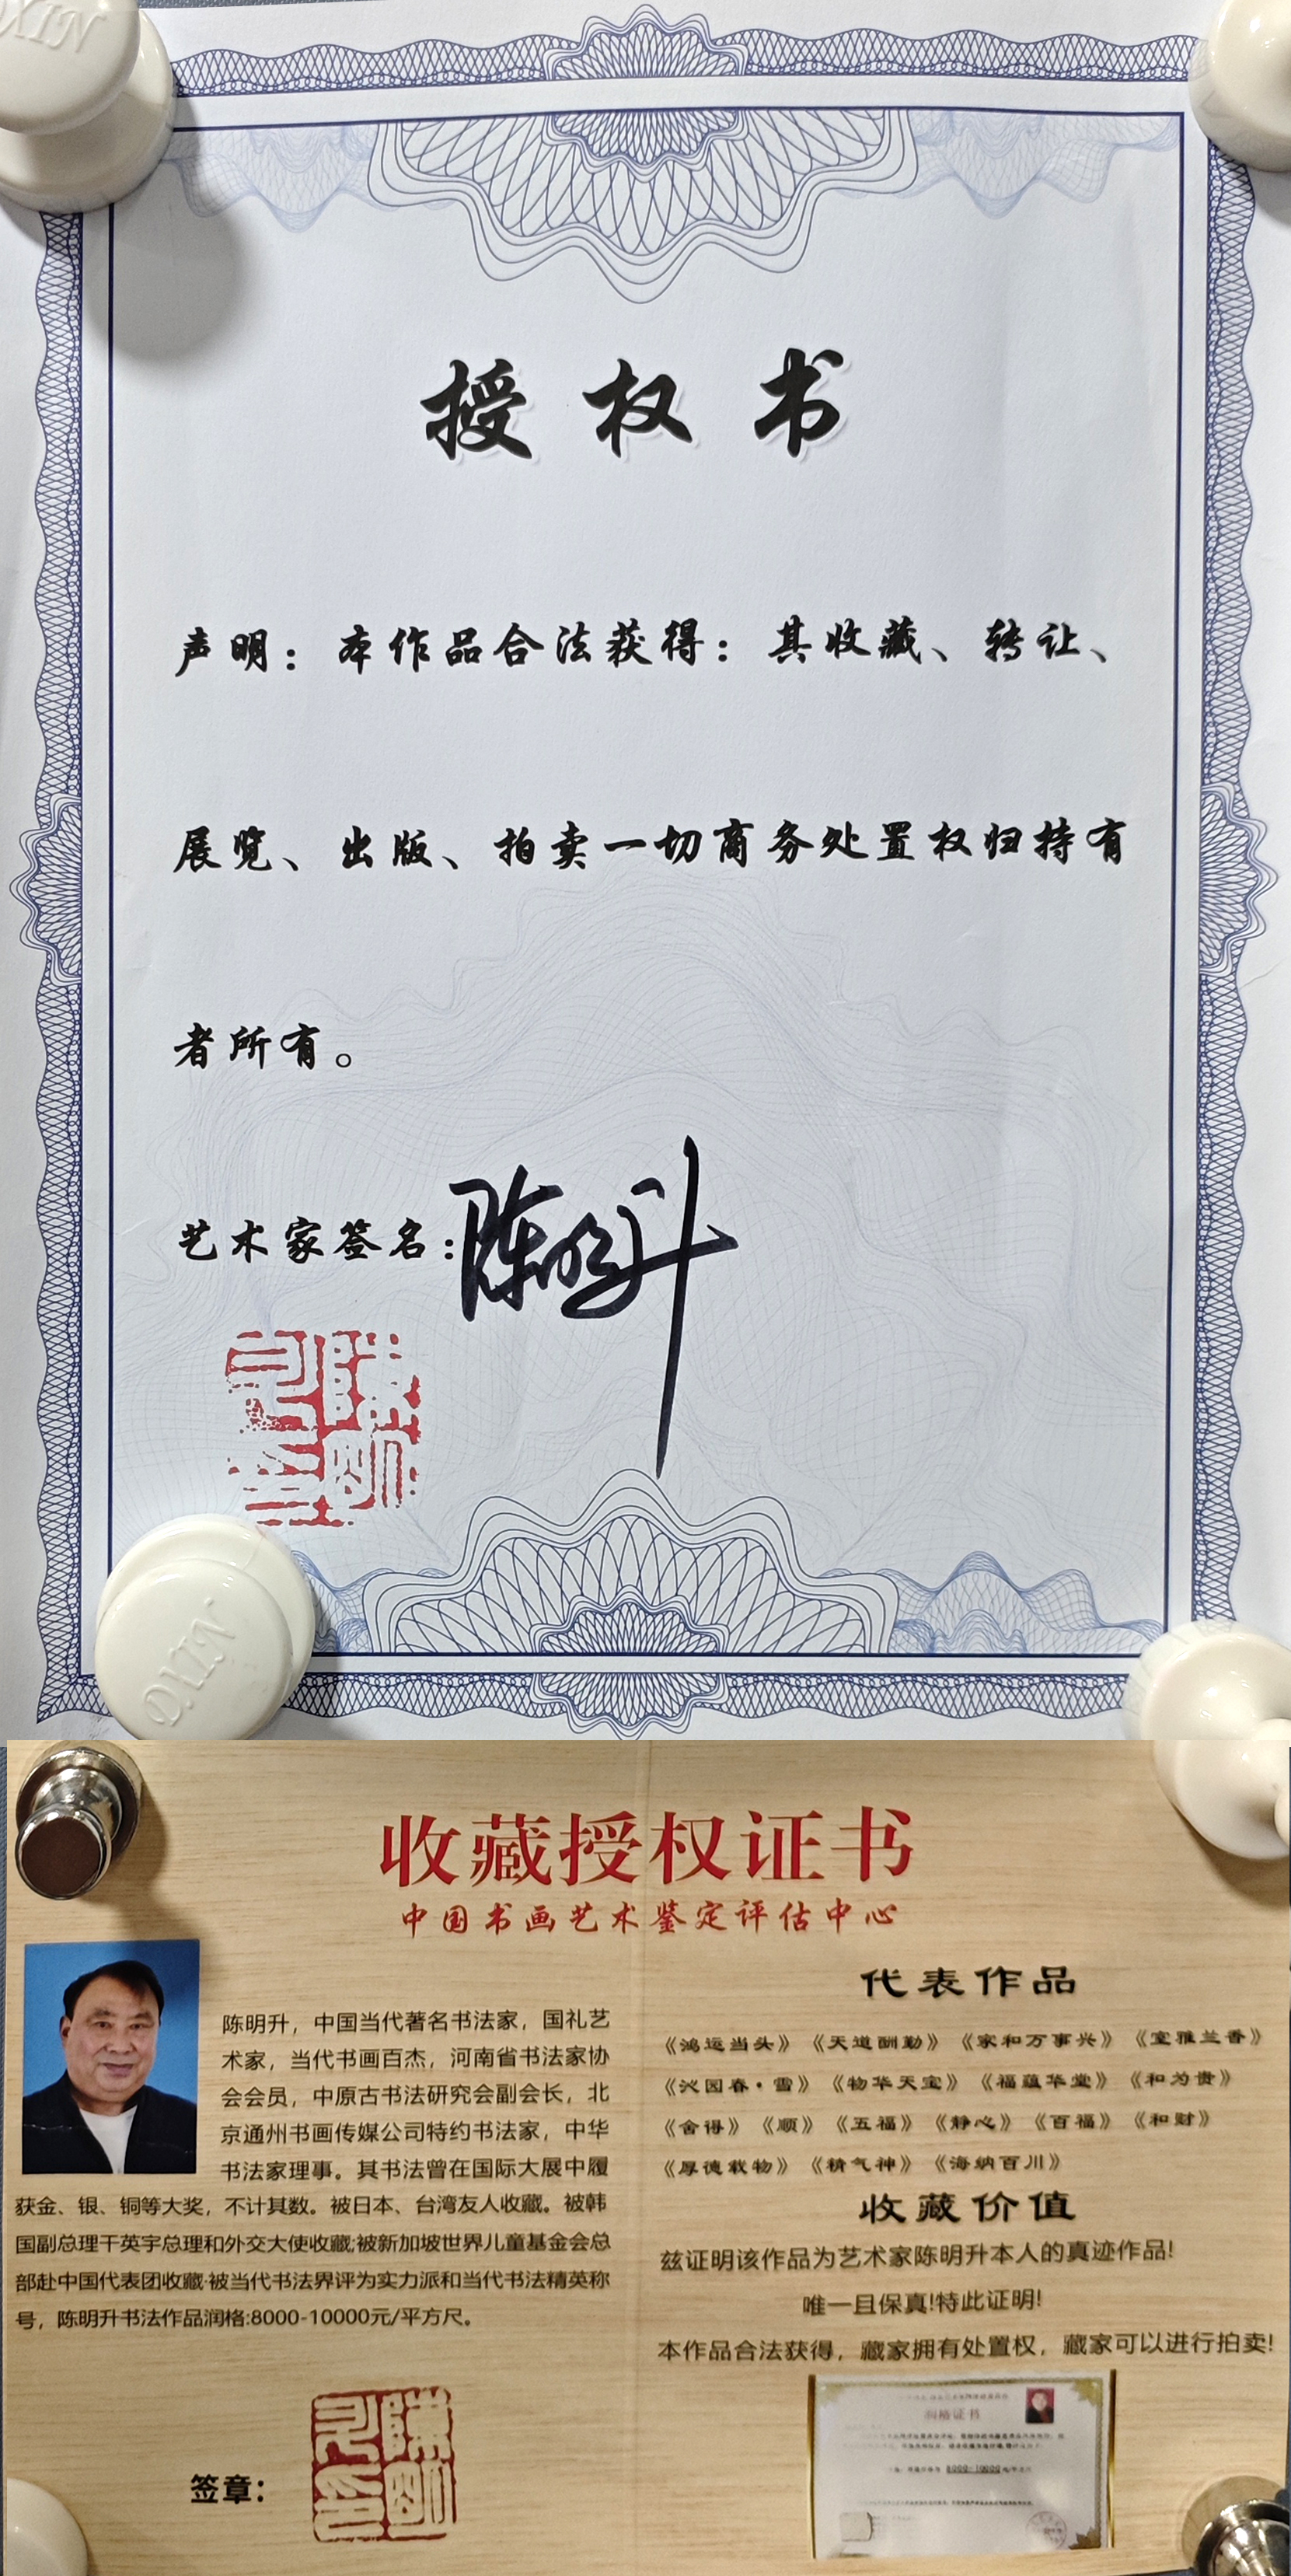 DXIN
授权书
声明：本作品合法获得：其收藏、转让、
展览、出版、拍卖一切商务处置权归持有
者所有。
艺术家签名：陈明升
DXIN
收藏授权证书
中国书画艺术鉴定评估中心
陈明升，中国当代著名书法家，国礼艺
术家，当代书画百杰，河南省书法家协
会会员，中原古书法研究会副会长，北
京通州书画传媒公司特约书法家，中华
书法家理事。其书法曾在国际大展中履
获金、银、铜等大奖，不计其数。被日本、台湾友人收藏。被韩
国副总理干英宇总理和外交大使收藏;被新加坡世界儿童基金会总
部赴中国代表团收藏·被当代书法界评为实力派和当代书法精英称
号，陈明升书法作品润格:8000-10000元/平方尺。
签章：
代表作品
《鸿运当头》《天道酬勤》《家和万事兴》《室雅兰香》
《沁园春·雪》《物华天宝》《福蕴华堂》《和为贵》
《舍得》《顺》《五福》《静心》《百福》《和财》
《厚德载物》《精气神》《海纳百川》
收藏价值
兹证明该作品为艺术家陈明升本人的真迹作品!
唯一且保真!特此证明!
本作品合法获得，藏家拥有处置权，藏家可以进行拍卖!
润格证书
8000-10000